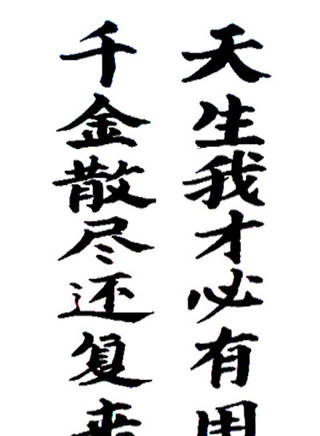 天生我才必有用
千金散尽还复来